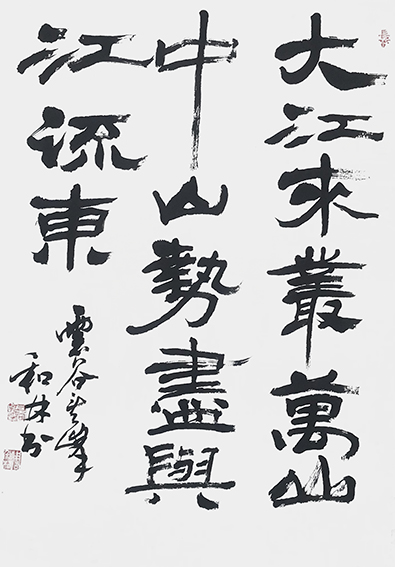 大江來叢萬山
中山勢盡與
江流東
雲谷峯
和林书